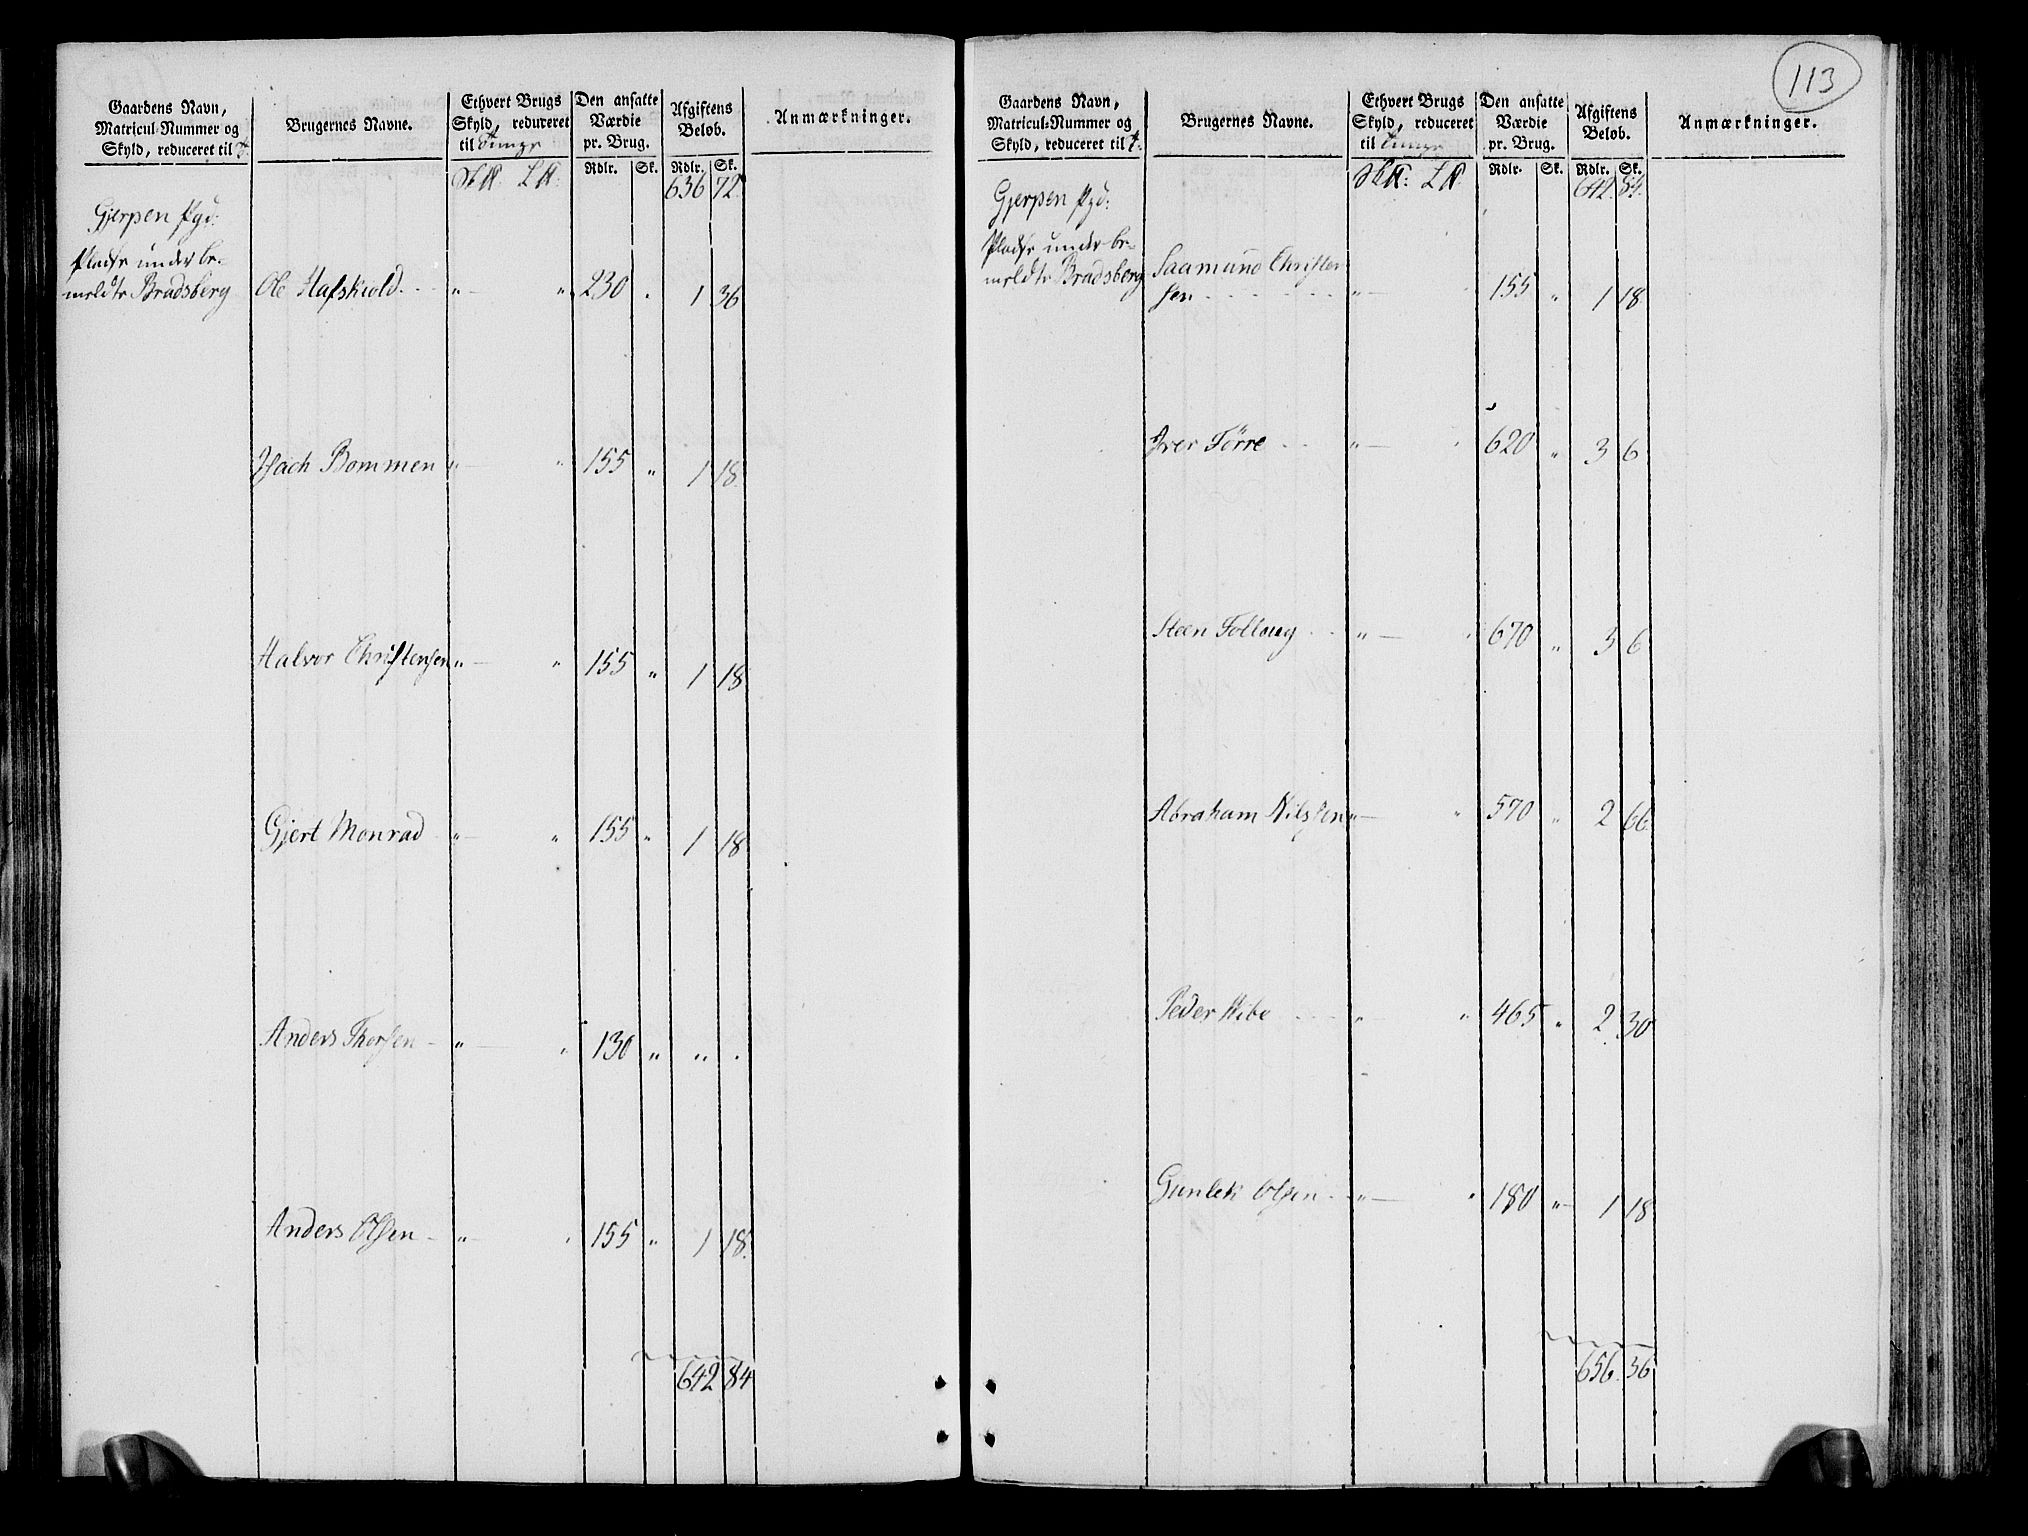 113
Gaardens Navn, Matricul-Nummer og Skyld, reduceret til
Brugernes Navne.
Ethvert Brugs Skyld, reduceret til Tunge
Den ansatte Værdie pr. Brug.
Afgiftens Beløb.
Anmærkninger.
Rdlr. Sk. Rdlr. Sk.
636 72
Gjerpen Pgd:
Pladse under be-
meldte Bradsberg Ole Hafskiold 230 " 1 36
Isach Bommen " " 155 " 1 18
Halvor Christensen " " 155 " 1 18
Gjert Monrad " " 155 " 1 18
Anders Thorsen " " 130 " " "
Anders Olsen " " 155 " 1 18
642 84
Gaardens Navn, Matricul-Nummer og Skyld, reduceret til
Brugernes Navne.
Ethvert Brugs Skyld, reduceret til Tunge
Den ansatte Værdie pr. Brug.
Afgiftens Beløb.
Anmærkninger.
Rdlr. Sk. Rdlr. Sk.
642 84
Gjerpen Pgd:
Pladse under be-
meldte Bradsberg Saamund Christen
sen " 155 " 1 18
Iver Tørre " " 620 " 3 6
Steen Follaug " " 670 " 3 6
Abraham Nilssen " " 570 " 2 66
Peder Ribe " " 465 " 2 30
Gunlek Olsen " " 180 " 1 18
656 36